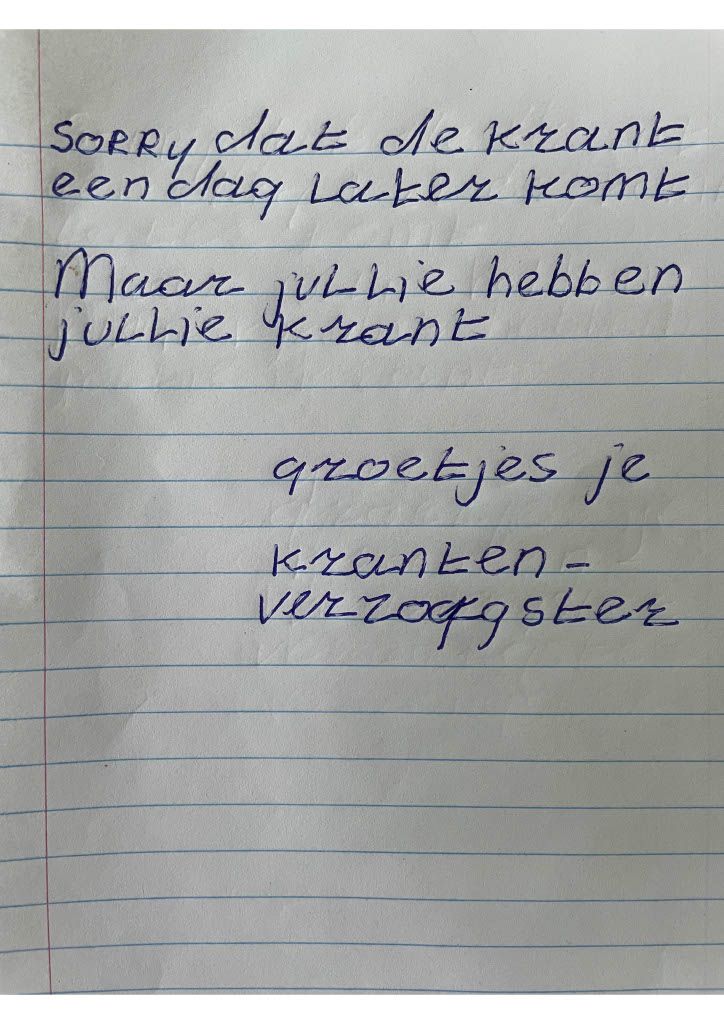 SORRY dat de krant
een dag later komt
Maar jullie hebben
jullie krant
groetjes je
kranten-